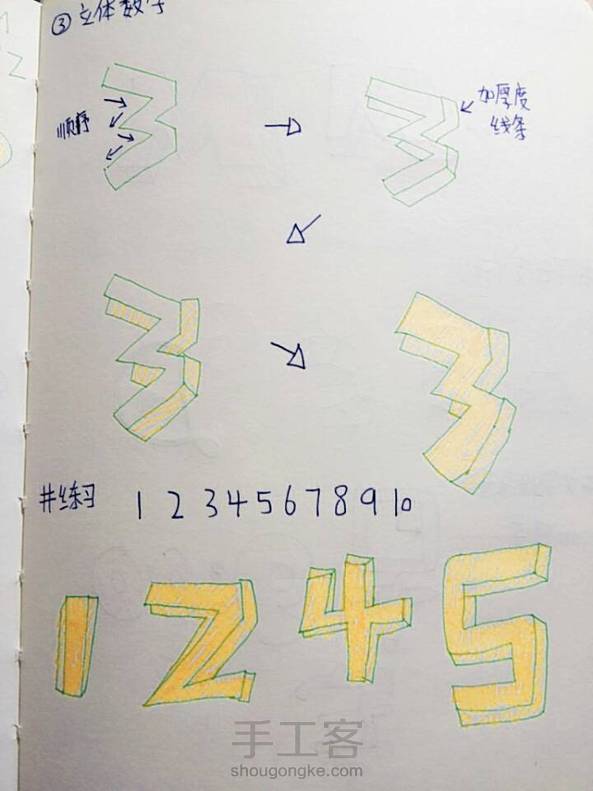 ③立体数字
顺序
加厚度
线条
#练习 1 2 3 4 5 6 7 8 9 10
1 2 4 5
手工客
shougongke.com